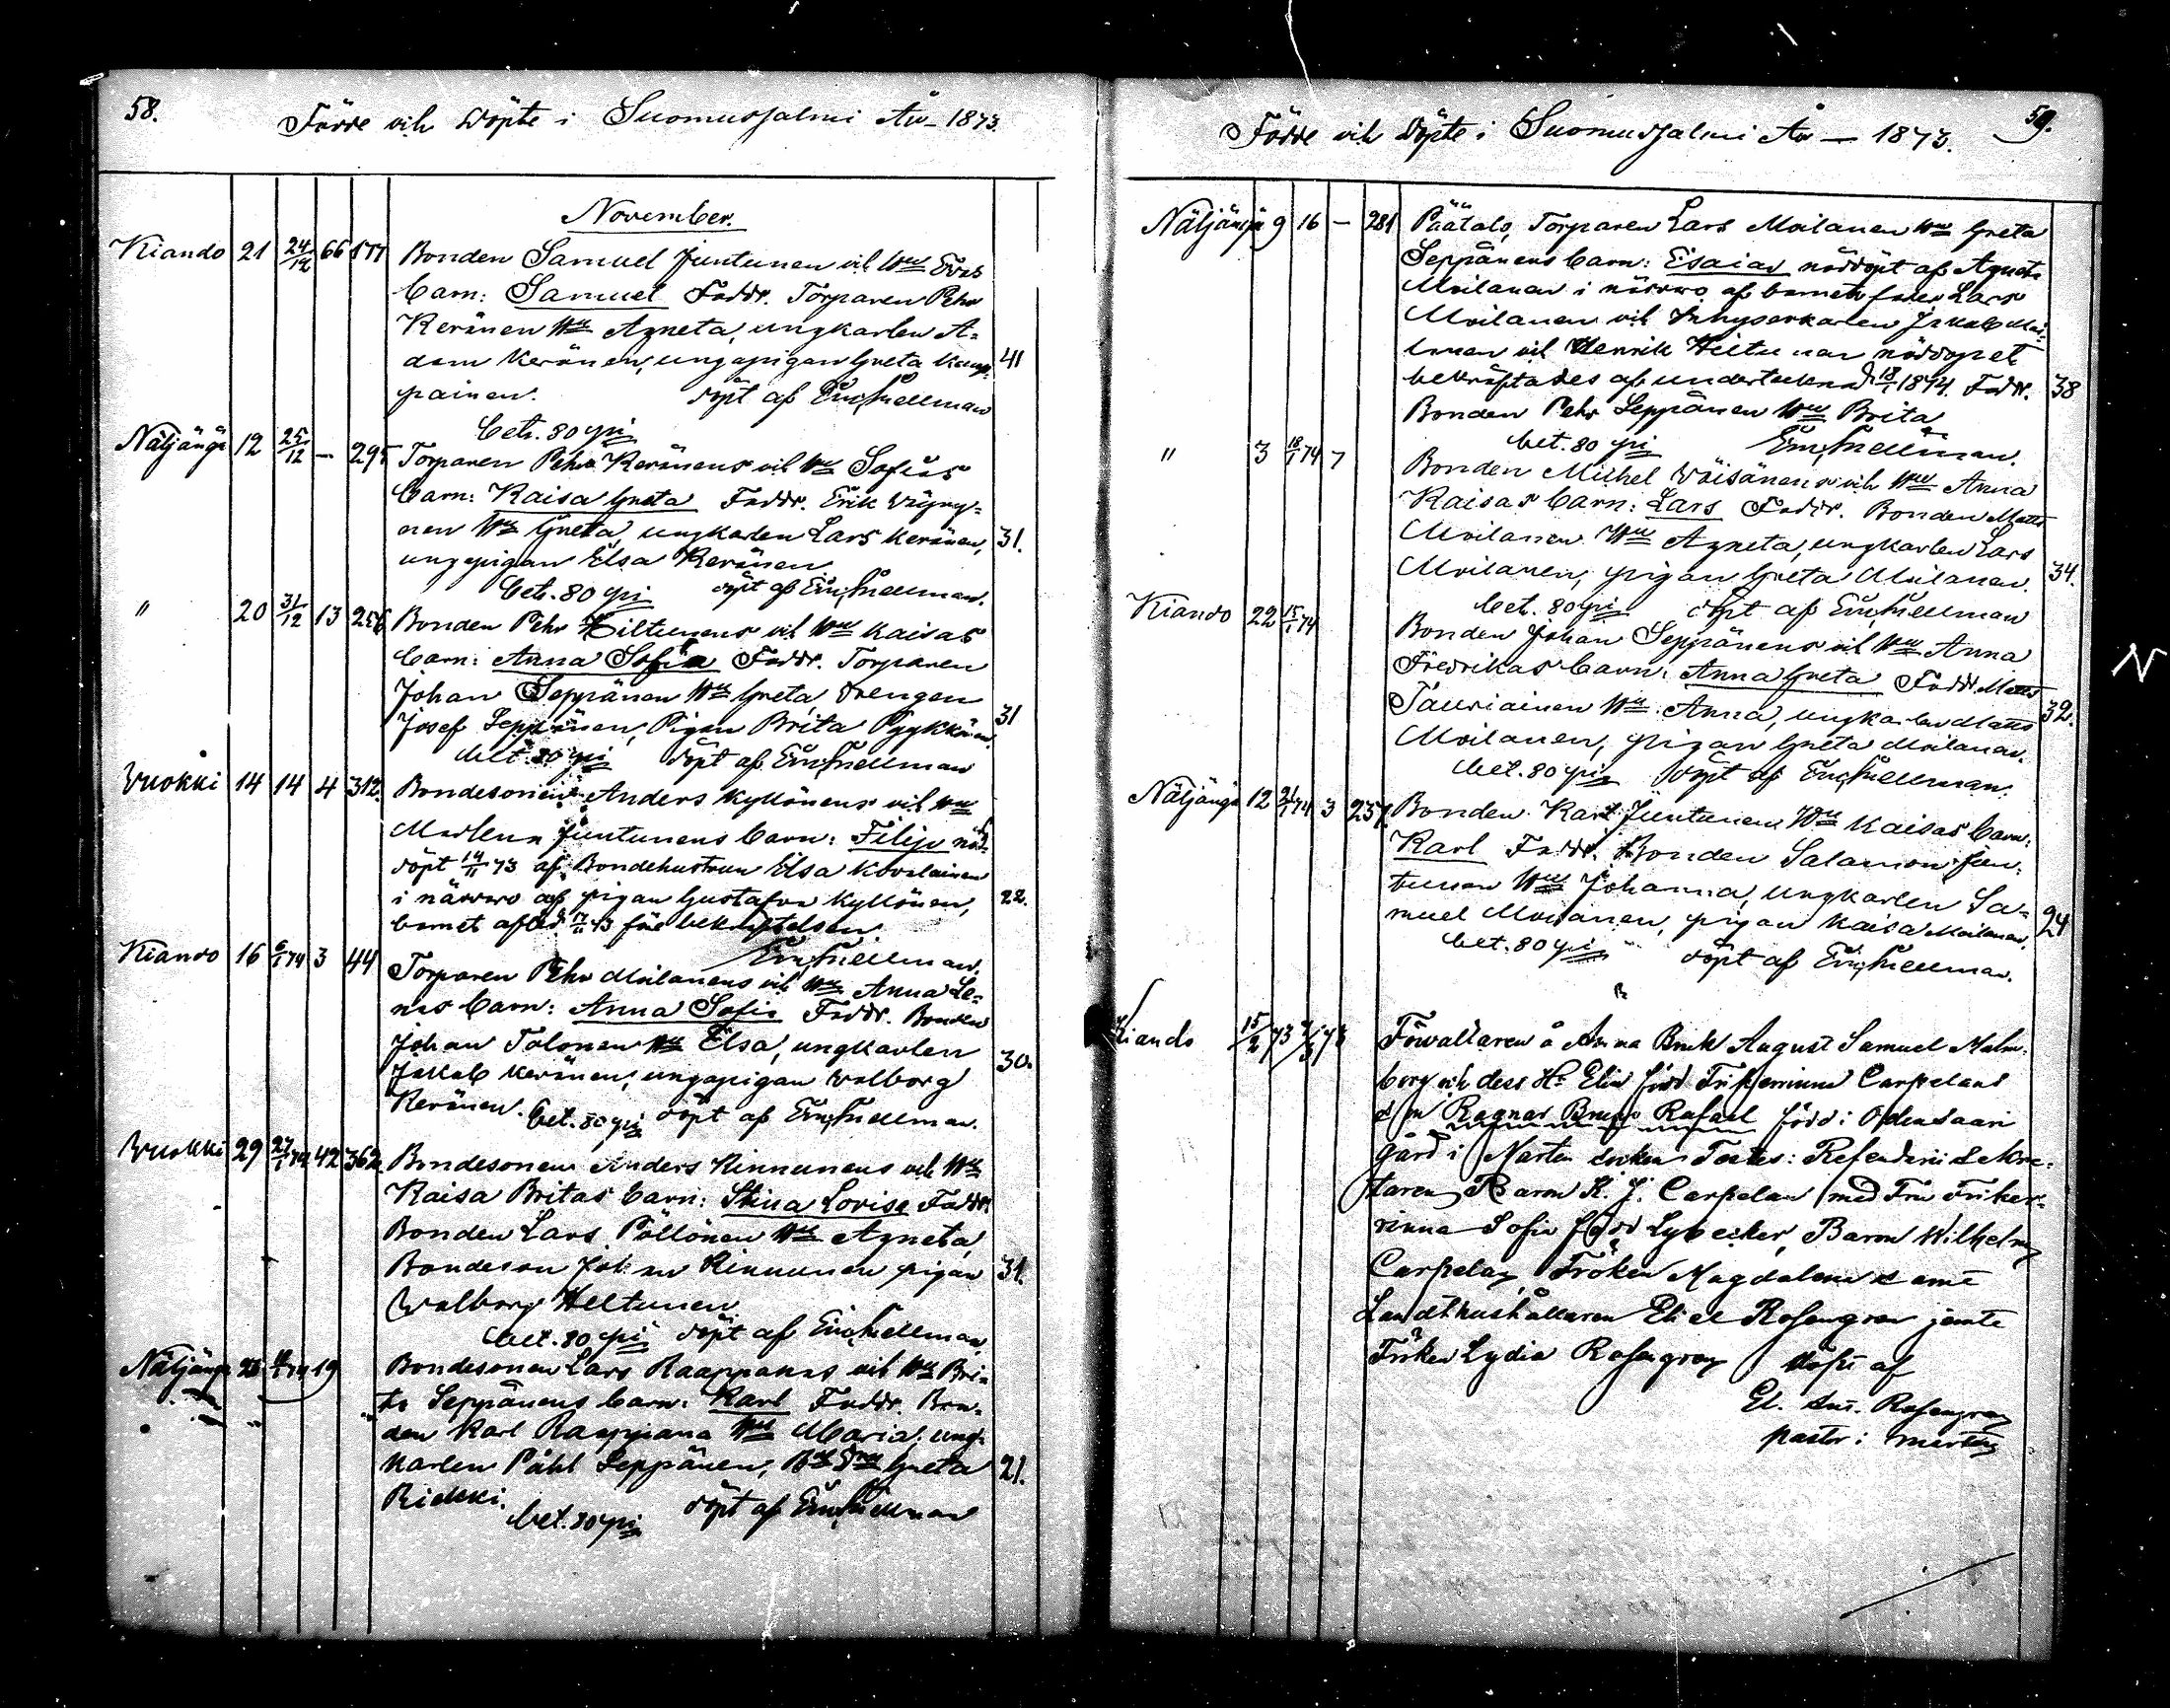 58.
Födde och Döpte i Suomussalmi År 1873.
November.
Kiando 21 24/12 66 177 Bonden Samuel Juntunen och Hu Evas
barn: Samuel Faddr. Torparen Pehr
Keränen Hu Agneta, ungkarlen A=
dam Keränen, ungapigan Greta Kemp= 41
painen. döpt af Eric Snellman
bet. 80 pi
Näljängä 12 25/12 – 295 Torparen Pehr Keränens och Hu Sofias
barn: Kaisa Greta Faddr. Erik Väyry=
nen Hu Greta, ungkarlen Lars Keränen, 31.
ungpigan Elsa Keränen
bet. 80 pi döpt af Eric Snellman.
" 20 31/12 13 256 Bonden Pehr Hiltunens och Hu Kaisas
barn: Anna Sofia Faddr. Torparen
Johan Seppänen Hu Greta, drengen
Josef Seppänen, Pigan Brita Pyykkönen. 31
bet. 80 pi döpt af Eric Snellman
Vuokki 14 14 4 312. Bondesonen Anders Kyllönens och Hu
Marlena Juntunens barn: Filip nöd=
döpt 14/11 73 af Bondehustrun Elsa Kovalainen
i närvaro af pigan Gustafva Kyllönen, 22.
barnet afled 17/11 73 före bekräftelsen
Eric Snellman.
Kiando 16 6/1 74 3 44 Torparen Pehr Moilanens och Hu Anna Le=
nas barn: Anna Sofia Faddr. Bonden
Johan Tolonen Hu Elsa, ungkarlen 30.
Jakob Keränen, ungapigan Valborg
Keränen. bet. 80 pi döpt af Eric Snellman
Vuokki 29 27/1 74 42 362. Bondesonen Anders Kinnunens och Hu
Kaisa Britas barn: Stina Lovisa Faddr.
Bonden Lars Pöllönen Hu Agneta,
Bondeson Johan Kinnunen pigan 31.
Valborg Heltunen
bet. 80 pi döpt af Eric Snellman
Näljängä 74 19 Bondesonen Lars Raappanas och Hu Bri=
ta Seppänens barn: Karl Faddr. Bon=
den Karl Raappana Hu Maria, ung=
karlen Påhl Seppänen, Greta 21.
Riekki.
bet. 80 pi döpt af Eric Snellman
59.
Födde och Döpte i Suomussalmi År — 1873.
Näljängä 9 16 – 281 Päätalo, Torparen Lars Moilanen Hu Greta
Seppänens barn: Esaias nöddöpt af Agneta
Moilanen i närvaro af barnets fader Lars
Moilanen och Inhyseskarlen Jakob Moi=
lanen och Henrik Hiltunen nöddopet
bekräftades af undertecknad 18/1 1874. Faddr. 38
Bonden Pehr Seppänen Hu Brita
bet. 80 pi Eric Snellman.
" 3 18/1 74 7 Bonden Michel Väisänens och Hu Anna
Kaisas barn: Lars Faddr. Bonden Matts
Moilanen Hu Agneta, ungkarlen Lars
Moilanen, pigan Greta Moilanen. 34.
bet. 80 pi döpt af Eric Snellman
Kiando 22 15/1 74 Bonden Johan Seppänens och Hu Anna
Fredrikas barn: Anna Greta Faddr. Matts
Tauriainen Hu Anna, ungkarlen Matts 32.
Moilanen, pigan Greta Moilanen.
bet. 80 pi döpt af Eric Snellman.
Näljängä 12 21/1 74 3 257. Bonden Karl Juntunen Hu Kaisas barn:
Karl Faddr. Bonden Salamon Jun=
tunen Hu Johanna, ungkarlen Sa=
muel Moilanen, pigan Kaisa Moilanen. 24
bet. 80 pi döpt af Eric Snellman.
Kiando 15/2 73 Förvaltaren å Ämmä Bruk August Samuel Malm=
berg och dess Hu Elin född Friherrinna Carpelans
son Ragnar Bruno Rafael född i
gård i Mårtens socken Testes: Referendarie Sekre=
taren Baron K. J. Carpelan med Fru Friher=
rinna Sofie född Lybecker, Baron Wilhelm
Carpelan, Fröken Magdalena samt
Landthushållaren Eliel Rosengren jemte
Fröken Lydia Rosengren döpt af
El. Rosengren
pastor i Mårtens